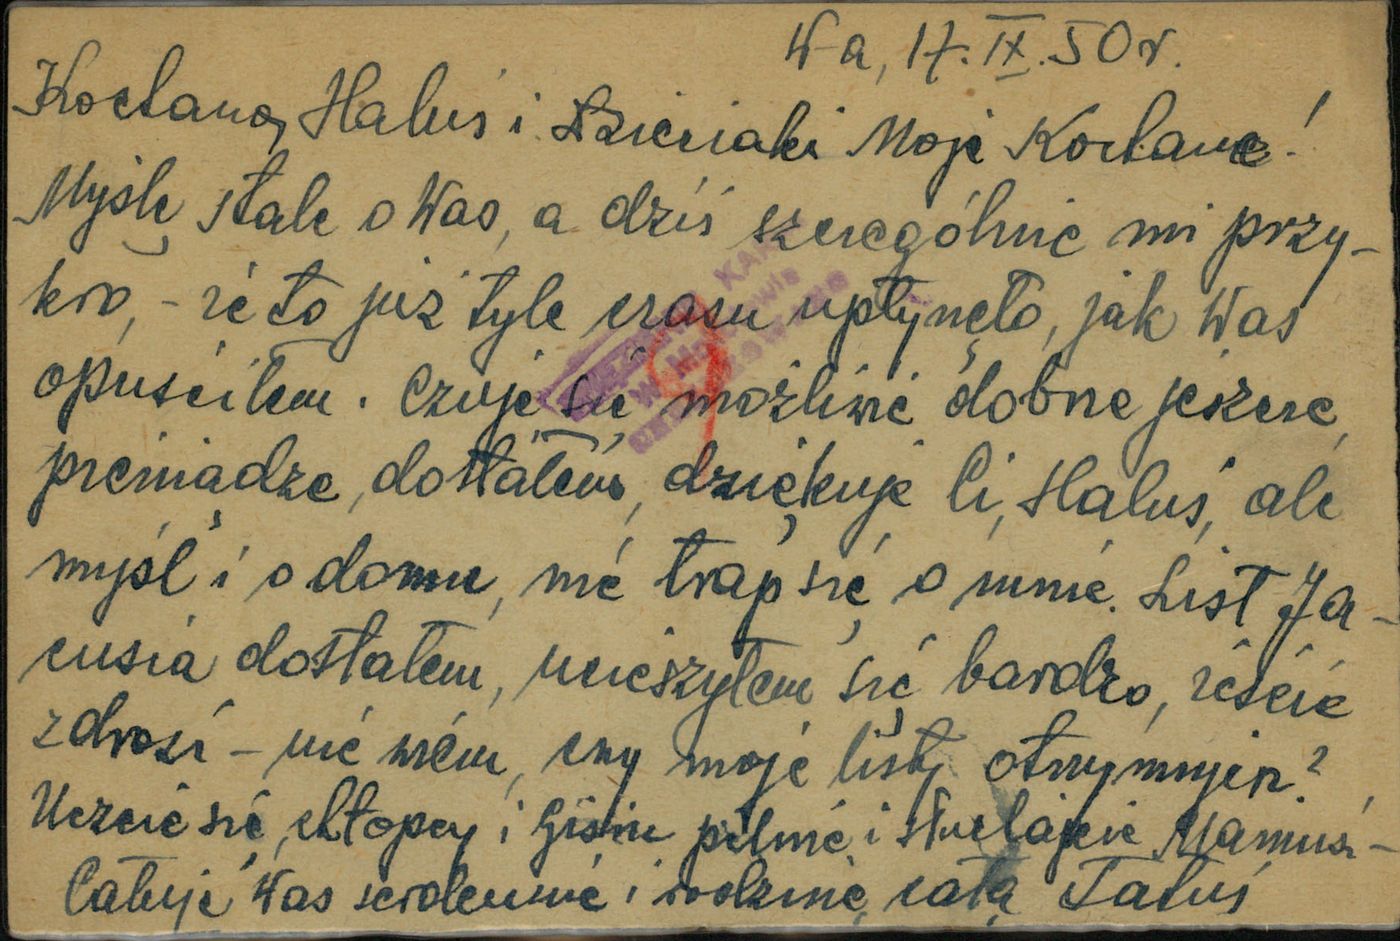 W-a, 17.IX.50r.
Kochaną Haluś i Dzieciaki Moje Kochane!
Myślę stale o Was, a dziś szczególnie mi przy-
kro, - że to już tyle czasu upłynęło, jak Was
opuściłem. Czuję się możliwie dobrze jeszcze,
pieniądze, dostałem, dziękuję Ci, Haluś, ale
myśl i o domu, nie trap się o mnie. List Ja-
cusia dostałem, ucieszyłem się bardzo, żeście
zdrowi - nie wiem, czy moje listy otrzymujecie?
Uczcie się, chłopcy i Gisiu pilnie i słuchajcie Mamusi-
Całuję Was serdecznie i rodzinę całą Tatuś
9